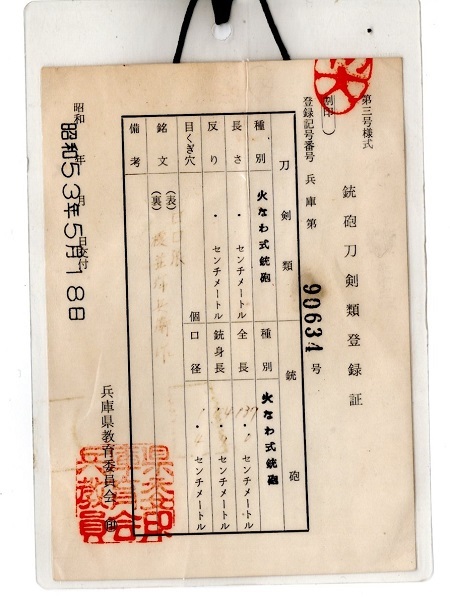 第三号様式
銃砲刀剣類登録証
(割印)
登録記号番号 兵庫第 90634 号
刀剣類
銃砲
種別 火なわ式銃砲
種別 火なわ式銃砲
長さ ・ センチメートル
全長 137・ センチメートル
反り ・ センチメートル
銃身長 ・ センチメートル
目くぎ穴 個
口径 1・ センチメートル
銘文 (表)
(裏)
備考
昭和 年 月 日交付
昭和53年5月18日
兵庫県教育委員会 印
兵庫県教育委員会印